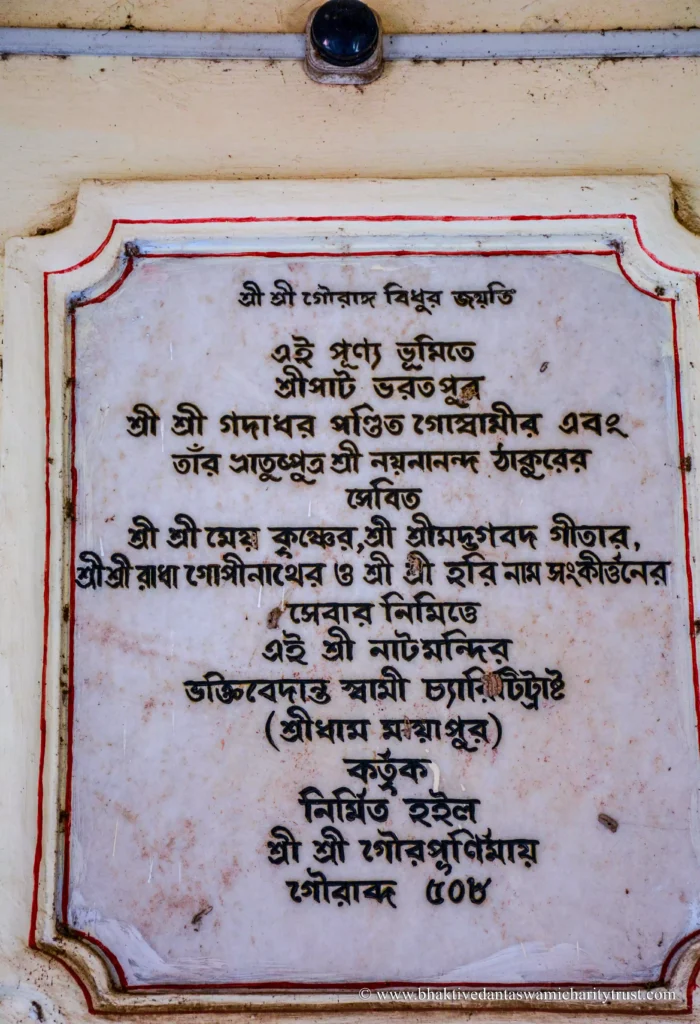 শ্রী শ্রী গৌরাঙ্গ বিধুর জয়তি
এই পূণ্য ভূমিতে
শ্রীপাট ভরতপুর
শ্রী শ্রী গদাধর পণ্ডিত গোস্বামীর এবং
তাঁর ভ্রাতুষ্পুত্র শ্রী নয়নানন্দ ঠাকুরের
সেবিত
শ্রী শ্রী মেয় কৃষ্ণের, শ্রী শ্রীমদ্ভগবদ গীতার,
শ্রীশ্রী রাধা গোপীনাথের ও শ্রী শ্রী হরি নাম সংকীর্ত্তনের
সেবার নিমিত্তে
এই শ্রী নাটমন্দির
ভক্তিবেদান্ত স্বামী চ্যারিটিট্রাষ্ট
(শ্রীধাম মায়াপুর)
কর্তৃক
নির্মিত হইল
শ্রী শ্রী গৌরপূর্ণিমায়
গৌরাব্দ ৫০৮
© www.bhaktivedantaswamicharitytrust.com